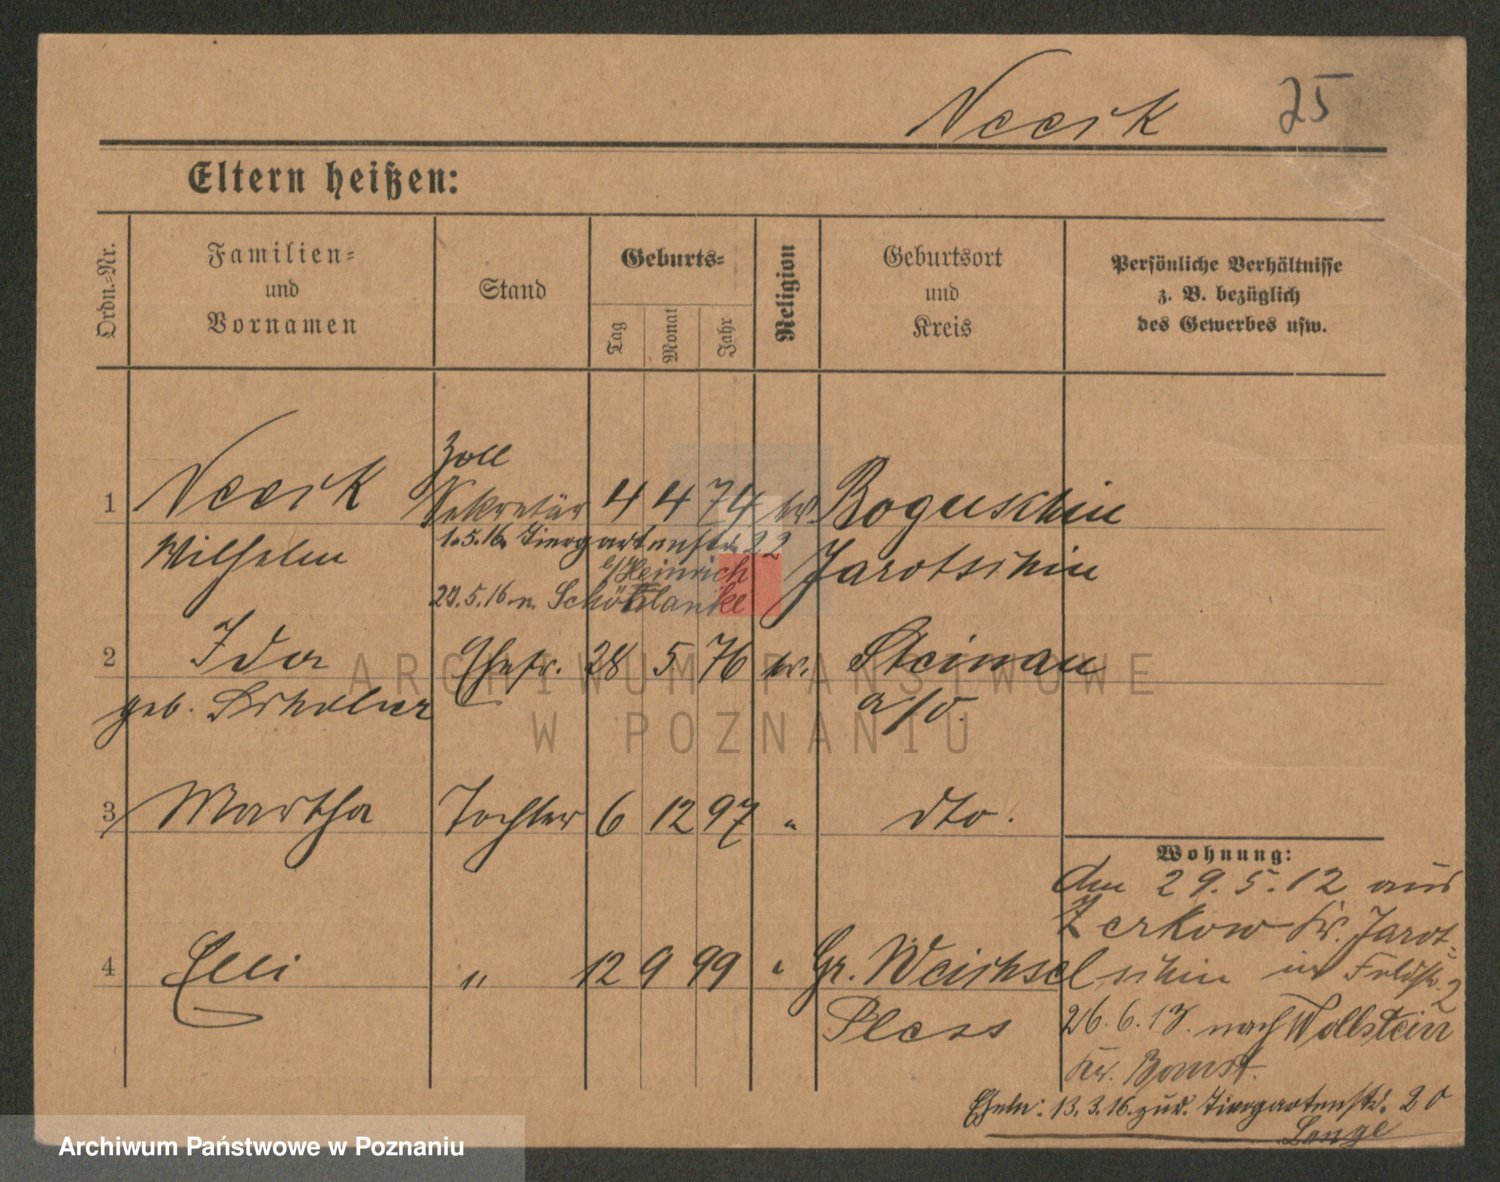 Neesk 25
Eltern heißen:
Ordn.-Nr.
Familien-
und
Vornamen
Stand
Geburts-
Tag
Monat
Jahr
Religion
Geburtsort
und
Kreis
Persönliche Verhältnisse
z. B. bezüglich
des Gewerbes usw.
Zoll
1 Sekretär 4 4 74 Boguschin
Wilhelm Jarotschin
1.5.16 Tiergartenstr. 22
b/Heinrich
5.16 n. Schönlanke
2 Ida Ehefr. 28 5 76 Steinau
geb. a/O.
3 Martha Tochter 6 12 97 " dto.
Wohnung:
Am 29.5.12 aus
Zerkow Kr. Jarot-
schin in Feldstr. 2
4 Elli " 12 9 99 " Gr. Weichsel
Pless
26.6.13. nach Wollstein
Kr. Bomst.
Eheln: 13.3.16. zur. Tiergartenstr. 20
Lange
ARCHIWUM PAŃSTWOWE
W POZNANIU
Archiwum Państwowe w Poznaniu